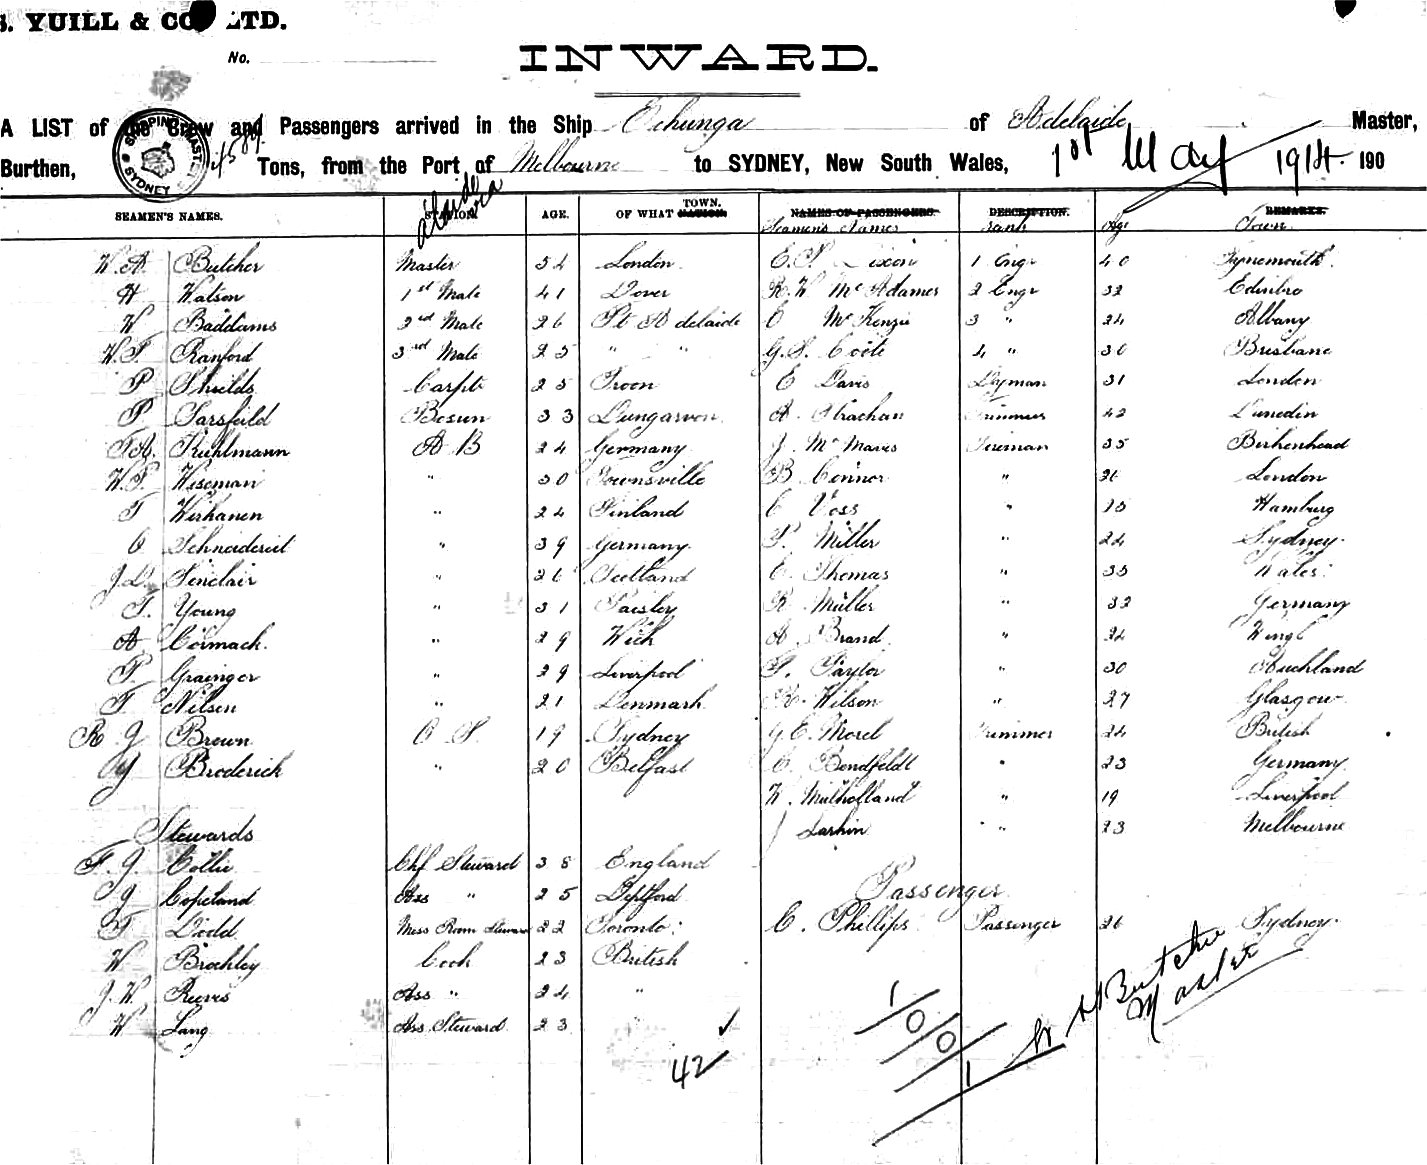 . YUILL & CO LTD.
No.
INWARD.
A LIST of the Crew and Passengers arrived in the Ship Echunga of Adelaide Master,
Burthen, Tons, from the Port of Melbourne to SYDNEY, New South Wales, 1st May 1914. 190
SHIPPING MASTER SYDNEY
SEAMEN'S NAMES. STATION. AGE. OF WHAT TOWN. NATION. NAMES OF PASSENGERS. DESCRIPTION. REMARKS.
Seamen's Names Rank Age Town
W. A. Butcher Master 54 London E. S. Dixon 1 Engr 40 Tynemouth
H Watson 1st Mate 41 Dover R. W McAdames 2 Engr 32 Edinbro
W Baddams 2nd Mate 26 Pt Adelaide McKenzie 3 " 24 Albany
W. T. Ranford 3rd Mate 25 " " G. S. Coote 4 " 30 Brisbane
P Shields Carptr 25 Troon E Davis Dyman 31 London
P Sarsfeild Bosun 33 Dungarvon A. Strachan Trimmer 42 Dunedin
Kuhlmann A B 24 Germany J. McMaves Fireman 35 Birkenhead
W. Wiseman " 30 Townsville B Connor " 26 London
T Wirhanen " 24 Finland C Voss " 25 Hamburg
O Schneidereit " 39 Germany Miller " 24 Sydney
J. D. Sinclair " 26 Scotland E. Thomas " 35 Wales
T. Young " 31 Paisley R Müller " 32 Germany
A Cormack. " 29 Wick A Brand " 24
Grainger " 29 Liverpool Taylor " 30 Auckland
T Nilsen " 21 Denmark Wilson " 27 Glasgow
R J Brown O S. 19 Sydney G. E. Morel Trimmer 24 British
J Broderick " 20 Belfast C. Bendfeldt " 23 Germany
W. Mulholland " 19 Liverpool
Stewards J Larkin " 23 Melbourne
F. J. Collie Chf Steward 38 England
J Copeland Ass " 25 Deptford Passenger
T Dodd Mess Room Steward 22 Toronto C. Phillips Passenger 26 Sydney
W Brockley Cook 23 British
J. W. Reeves Ass " 24 "
W Lang Ass. Steward 23
42
1/0/0/1
W A Butcher
Master